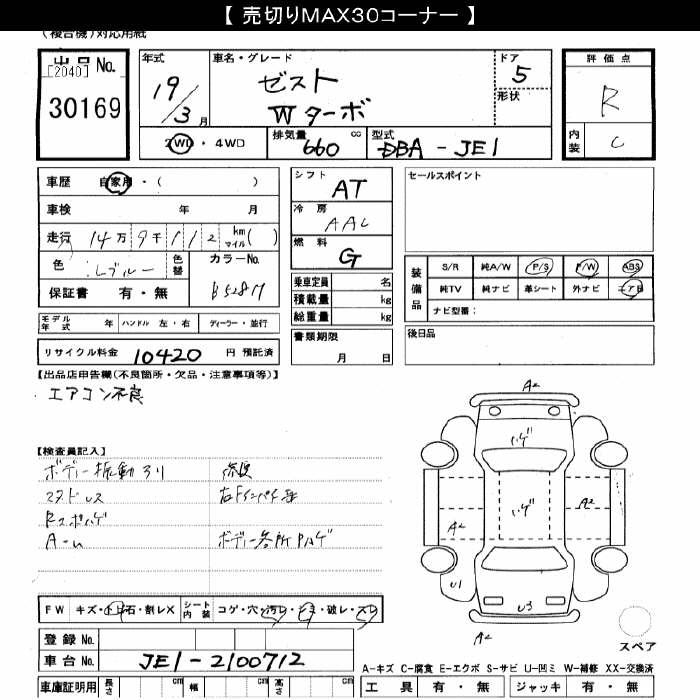 【 売切りMAX30コーナー 】
(複合機)対応用紙
出品 No. [2040]
30169
年式 19/3月
車名・グレード ゼスト Wターボ
ドア 5
形状
評価点 R
内装 C
2WD・4WD
排気量 660 cc
型式 DBA-JE1
車歴 自家用・( )
車検 年 月
走行 14万9千112 km マイル( )
色 :Lブルー 色替
カラーNo. B528M
保証書 有・無
シフト AT
冷房 AAC
燃料 G
乗車定員 名
積載量 kg
総重量 kg
書類期限 月 日
セールスポイント
装備品 S/R 純A/W P/S P/W ABS
純TV 純ナビ 革シート 外ナビ エアB
ナビ型番:
後日品
モデル年式 年 ハンドル 左・右 ディーラー・並行
リサイクル料金 10420 円 預託済
【出品店申告欄(不良箇所・欠品・注意事項等)】
エアコン不良
【検査員記入】
ボディー振動アリ 修復
スタドレス
Rスポハゲ
A-u ボディー各所PハゲA2
ハゲ
ハゲ
A2
A2
U1
U3
A2
スペア
FW キズ・トビ石・割レX
シート内装 コゲ・穴・汚レ・シミ・破レ・スレ
登録 No.
車台 No. JE1-2100712
A-キズ C-腐食 E-エクボ S-サビ U-凹ミ W-補修 XX-交換済
車庫証明用 長さ cm 幅 cm 高さ cm
工具 有・無 ジャッキ 有・無